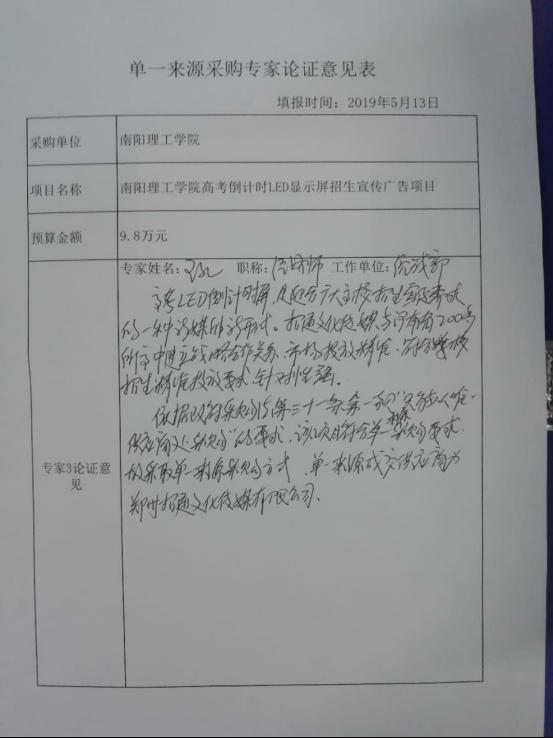 单一来源采购专家论证意见表
填报时间：2019年5月13日
采购单位 南阳理工学院
项目名称 南阳理工学院高考倒计时LED显示屏招生宣传广告项目
预算金额 9.8万元
专家姓名： 职称： 工作单位：统战部
高考LED倒计时屏，是迎合广大高校招生宣传需求
的一种新媒体新形式。招通文化传媒与河南省200多
所高中建立战略合作关系，市场投放精准，符合学校
招生精准投放要求，针对性强。
依据政府采购法第三十一条第一款“只能从唯一
供应商处采购”的要求，该项目符合单一来源采购要求，
拟采取单一来源采购方式，单一来源成交供应商为
郑州招通文化传媒有限公司。
专家3论证意
见